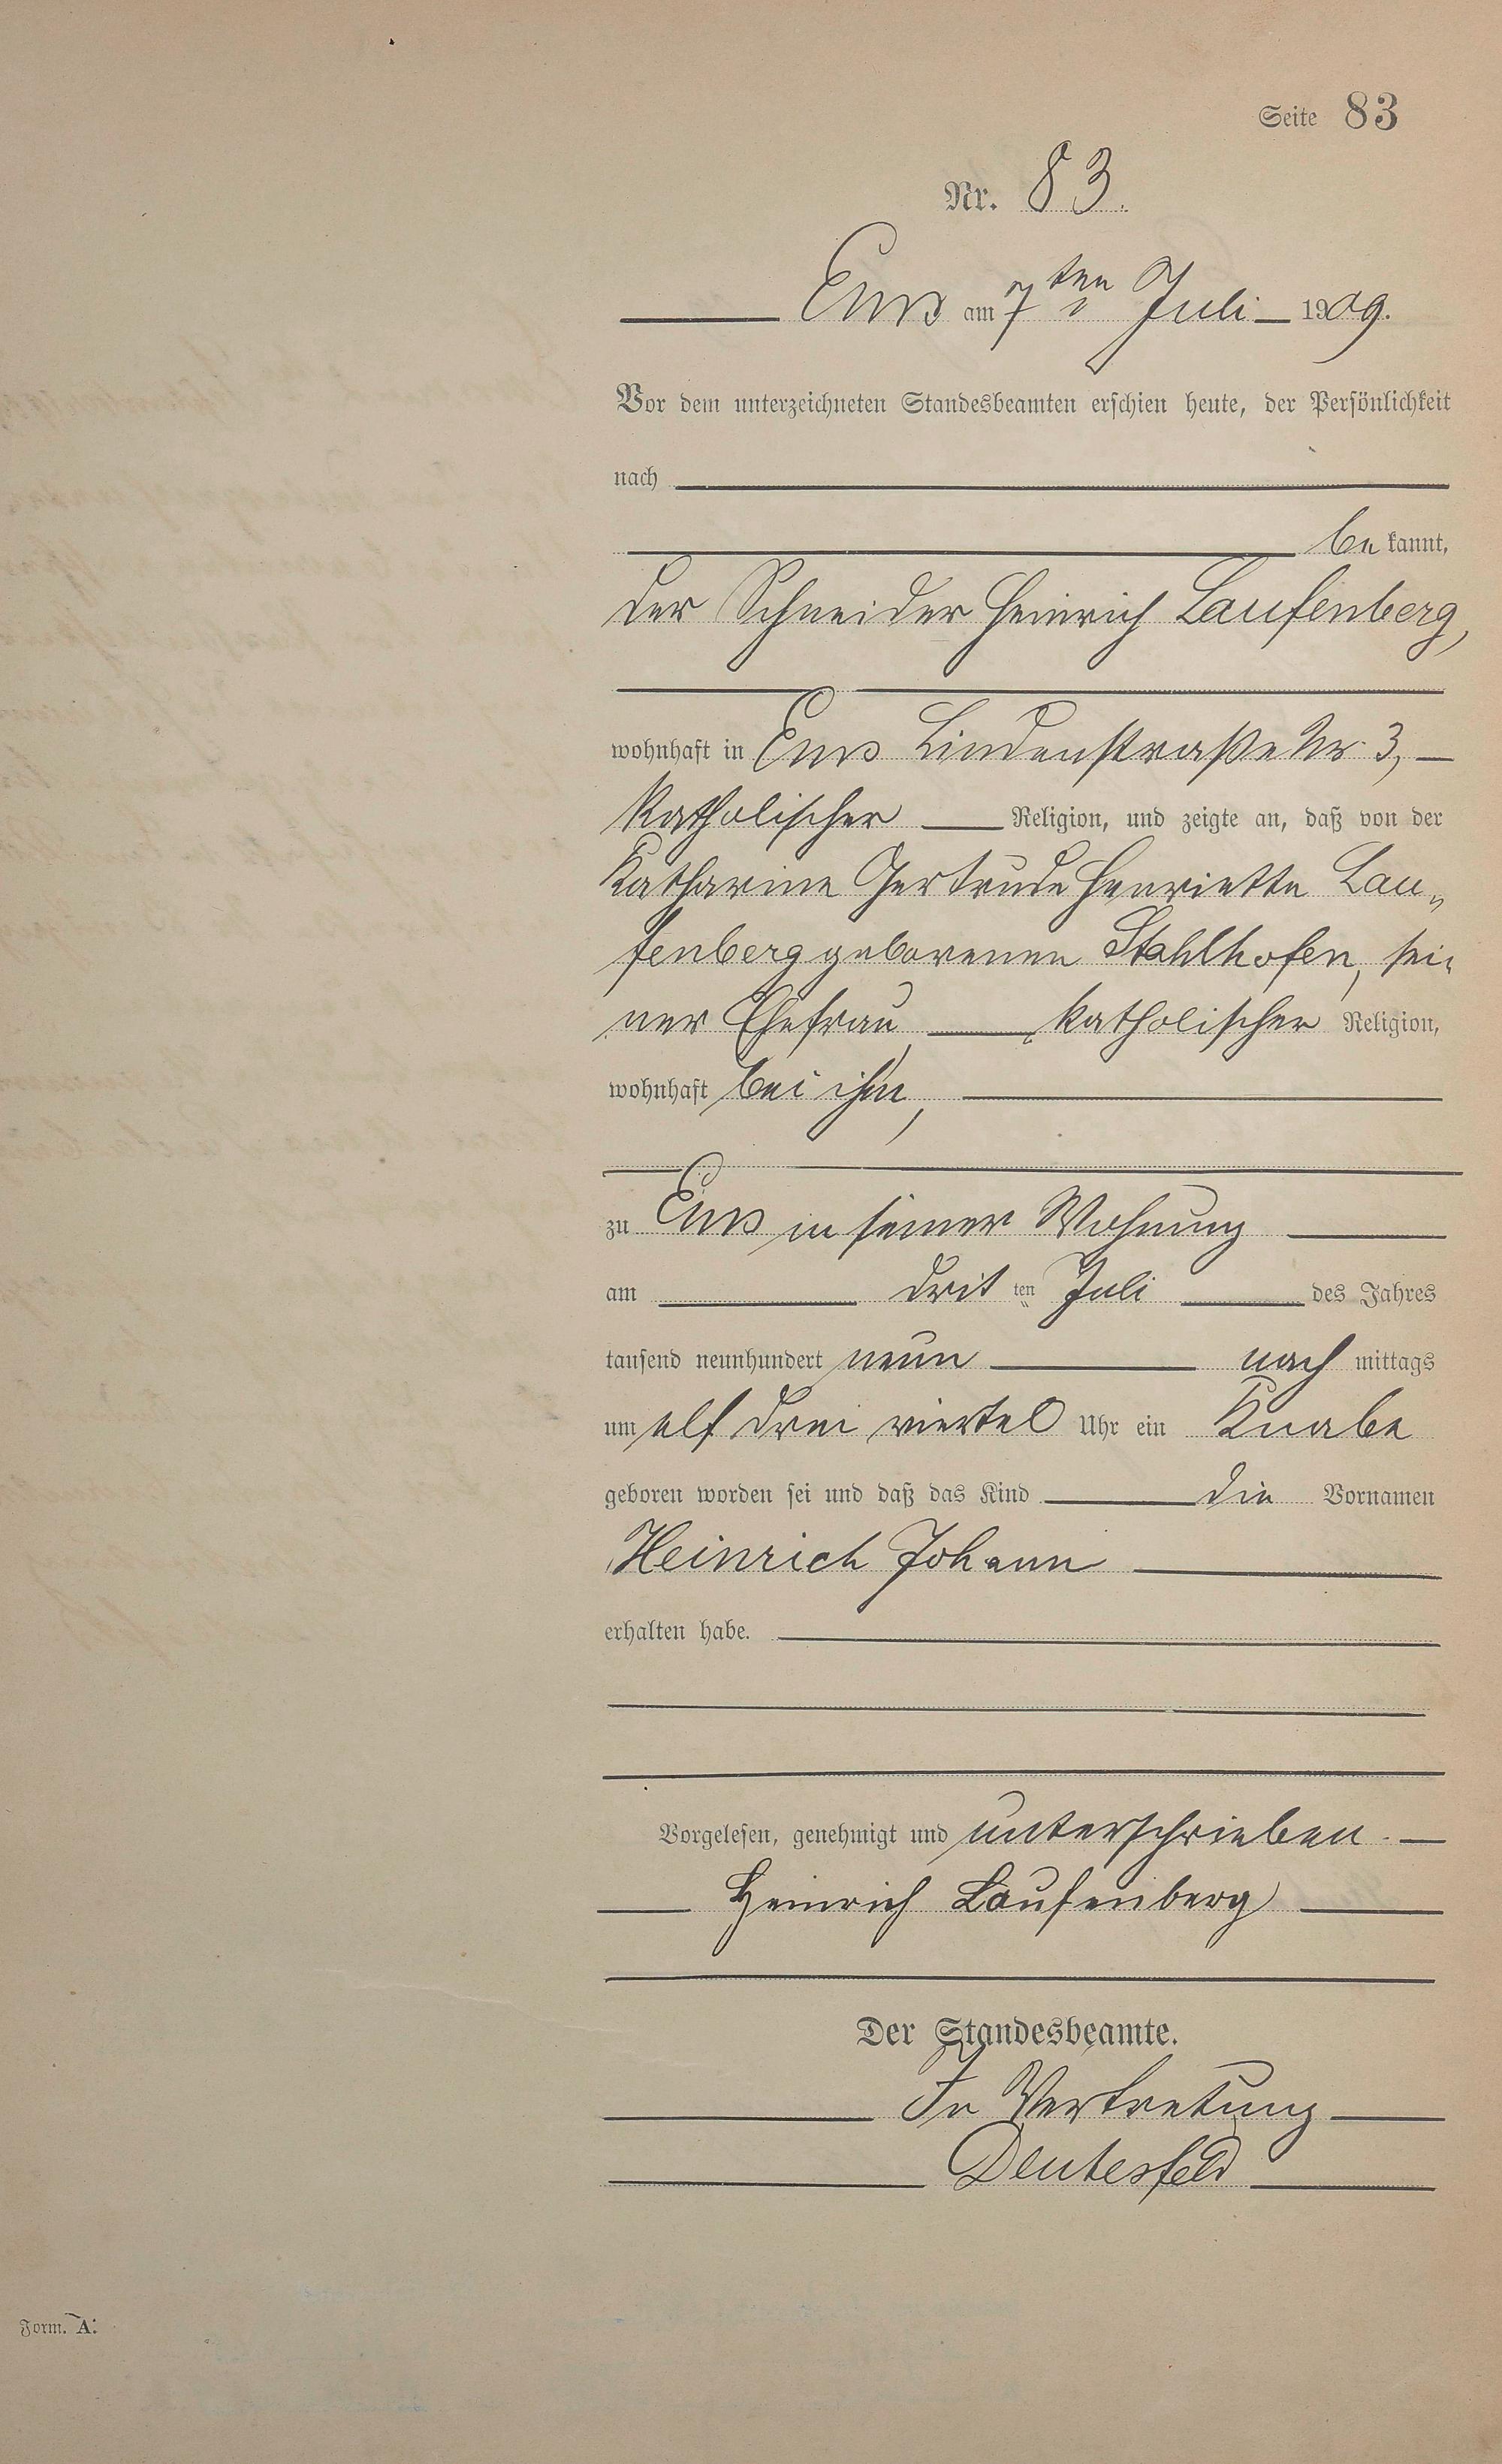 Seite 83
Nr. 83.
Ems am 7ten Juli 1909.
Vor dem unterzeichneten Standesbeamten erschien heute, der Persönlichkeit
nach
be kannt,
der Schneider Heinrich Laufenberg,
wohnhaft in Ems Lindenstraße Nr. 3,
katholischer Religion, und zeigte an, daß von der
Katharine Gertrude Henriette Lau„
fenberg geborenen Stahlhofen, sei„
ner Ehefrau, katholischer Religion,
wohnhaft bei ihm,
zu Ems in seiner Wohnung
am dritten Juli des Jahres
tausend neunhundert neun nach mittags
um elf drei viertel Uhr ein Knabe
geboren worden sei und daß das Kind die Vornamen
Heinrich Johann
erhalten habe.
Vorgelesen, genehmigt und unterschrieben.
Heinrich Laufenberg
Der Standesbeamte.
In Vertretung
Deutesfeld
Form. A.